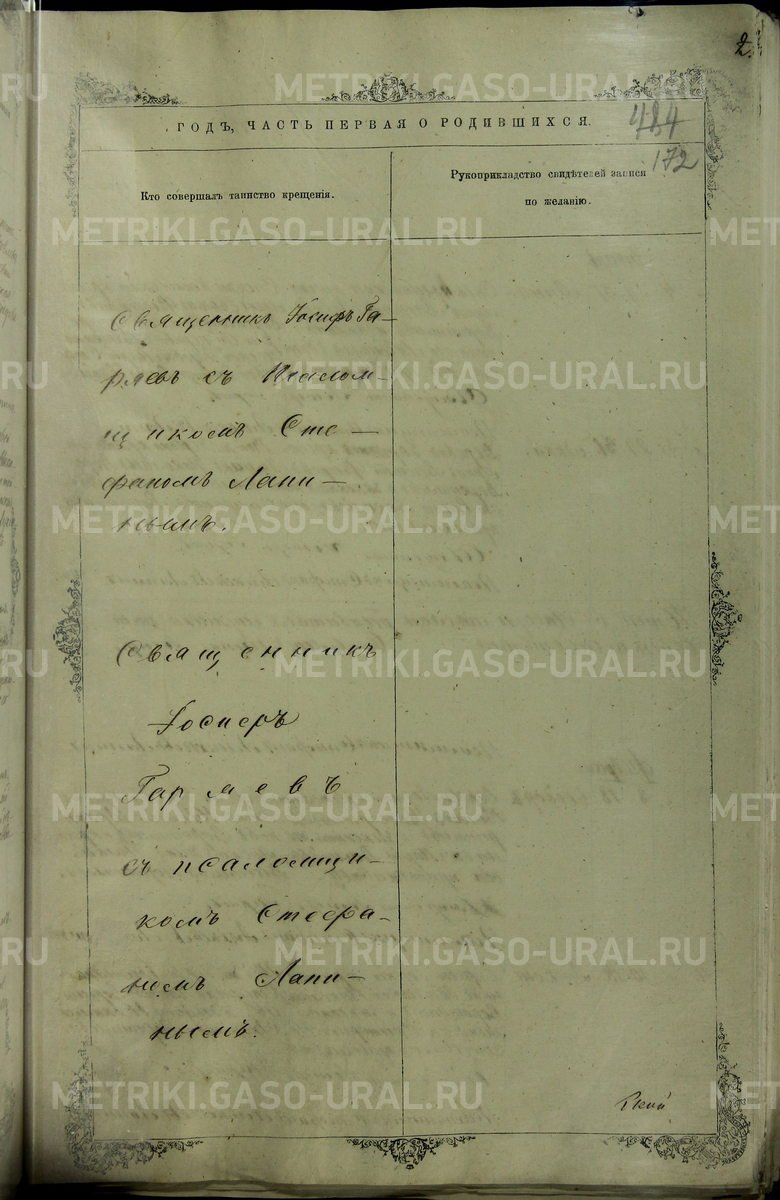 2.
ГОДЪ, ЧАСТЬ ПЕРВАЯ О РОДИВШИХСЯ.
484
172
Кто совершалъ таинство крещенія.
Рукоприкладство свидѣтелей записи
по желанію.
Священникъ Іосифъ Га-
ряевъ съ Псалом-
щикомъ Сте-
фаномъ Лапи-
нымъ.
Священникъ
Іосифъ
Гаряевъ
съ псаломщи-
комъ Стефа-
номъ Лапи-
нымъ.
METRIKI.GASO-URAL.RU